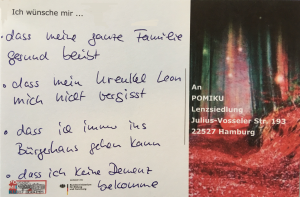 Ich wünsche mir ...
• dass meine ganze Familie
gesund bleibt
• dass mein Urenkel Leon
mich nicht vergisst
• dass ich immer ins
Bürgerhaus gehen kann
• dass ich keine Demenz
bekomme
An
POMIKU
Lenzsiedlung
Julius-Vosseler Str. 193
22527 Hamburg